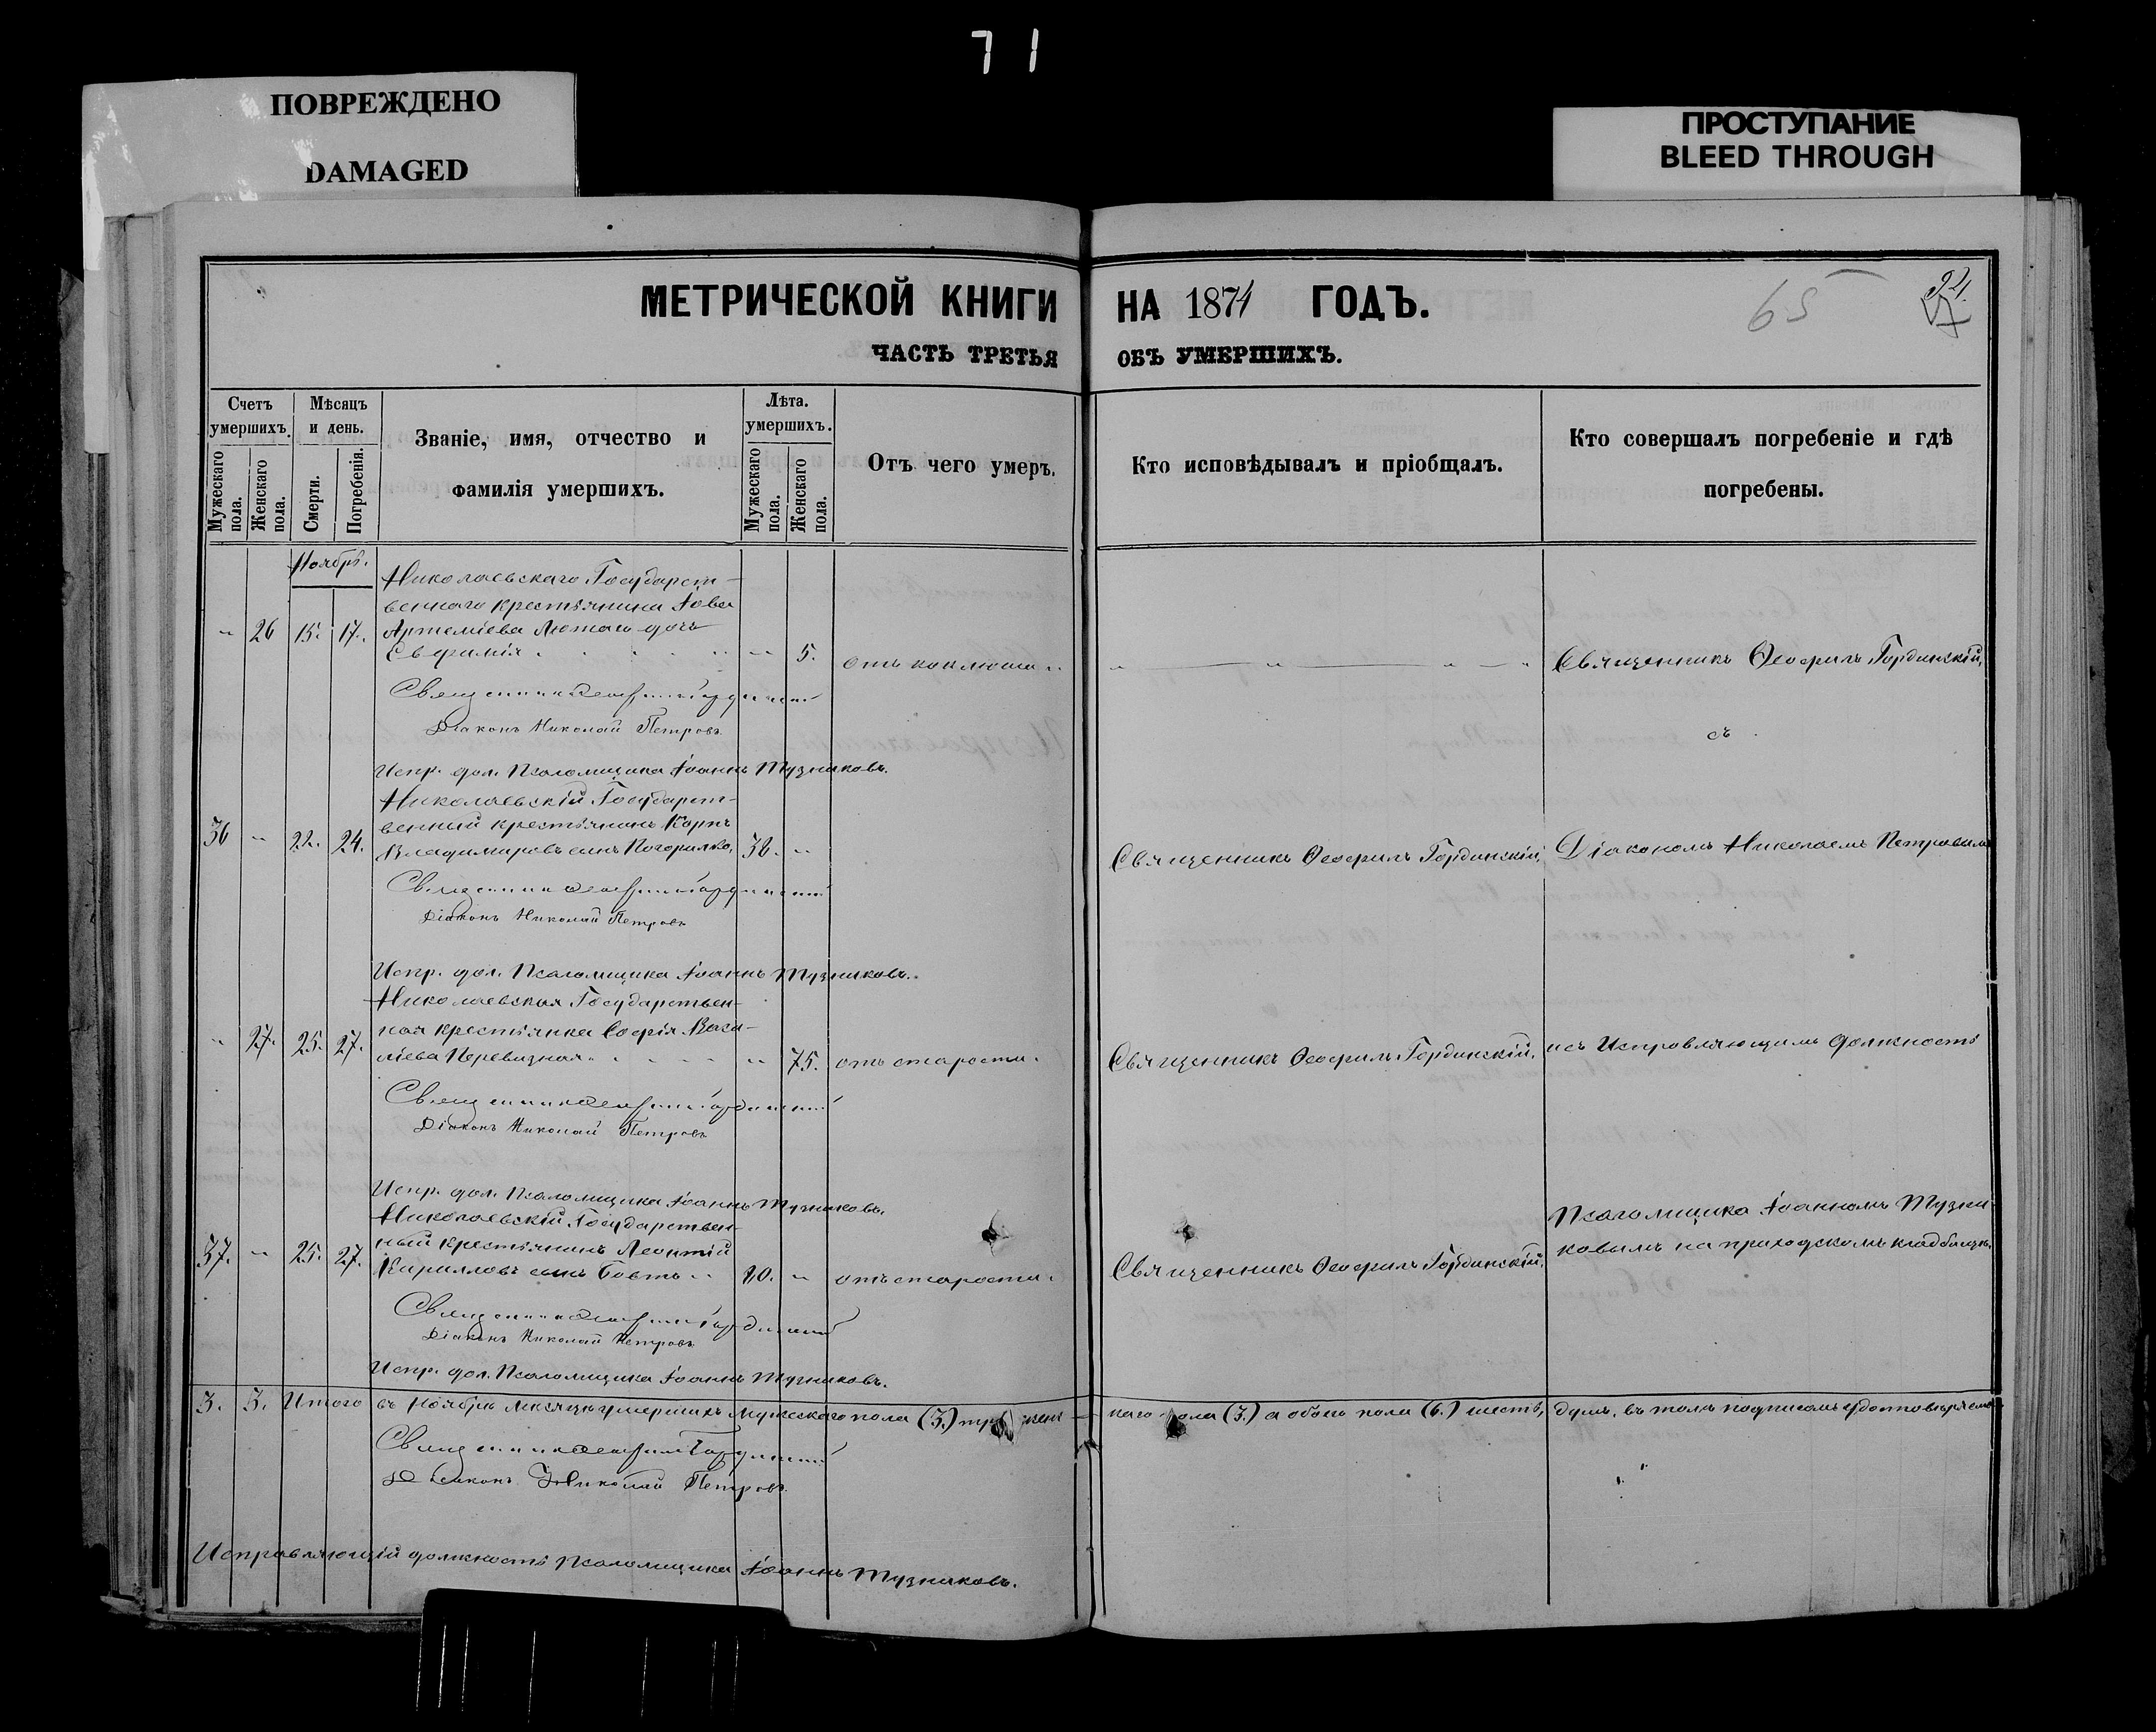 71
ПОВРЕЖДЕНО
DAMAGED
ПРОСТУПАНИЕ
BLEED THROUGH
МЕТРИЧЕСКОЙ КНИГИ НА 1871 ГОДЪ.
65
ЧАСТЬ ТРЕТЬЯ ОБЪ УМЕРШИХЪ.
Счетъ умершихъ.
Мужескаго пола.
Женскаго пола.
Мѣсяцъ и день.
Смерти.
Погребенія.
Званіе, имя, отчество и
фамилія умершихъ.
Лѣта. умершихъ.
Мужескаго пола.
Женскаго пола.
Отъ чего умеръ.
Кто исповѣдывалъ и пріобщалъ.
Кто совершалъ погребеніе и гдѣ
погребены.
Ноябрь.
Николаевскаго Государст-
веннаго крестьянина Іова
„ 26 15. 17. Артеміева Лютаго дочь
Евфимія „ 5. отъ коклюша „ „ „ „ Священникъ Ѳеофилъ Гординскій,
Священникъ Ѳеофилъ Гординскій
Діаконъ Николай Петровъ
съ
Испр. дол. Псаломщика Іоаннъ Тузниковъ.
Николаевскій Государст-
венный крестьянинъ Карпъ
36 „ 22. 24. Владиміровъ сынъ Погорилко, 38. „ Священникъ Ѳеофилъ Гординскій, Діакономъ Николаемъ Петровымъ
Священникъ Ѳеофилъ Гординскій
Діаконъ Николай Петровъ
Испр. дол. Псаломщика Іоаннъ Тузниковъ.
Николаевская Государствен-
„ 27. 25. 27. ная крестьянка Софія Васи-
ліева Перевизная „ 75. отъ старости. Священникъ Ѳеофилъ Гординскій. и съ Исправляющимъ должность
Священникъ Ѳеофилъ Гординскій
Діаконъ Николай Петровъ
Испр. дол. Псаломщика Іоаннъ Тузниковъ.
Николаевскій Государствен-
37. „ 25. 27. ный крестьянинъ Леонтій
Кирилловъ сынъ Бовтъ „ 90. „ отъ старости. Священникъ Ѳеофилъ Гординскій.
Псаломщика Іоанномъ Тузни-
ковымъ на приходскомъ кладбищѣ.
Священникъ Ѳеофилъ Гординскій
Діаконъ Николай Петровъ
Испр. дол. Псаломщика Іоаннъ Тузниковъ.
3. 3. Итого въ Ноябрѣ мѣсяцѣ умершихъ мужескаго пола (3.) три женскаго пола (3.) а обоего пола (6.) шесть, въ томъ подписомъ удостовѣряемъ
Священникъ Ѳеофилъ Гординскій
Діаконъ Николай Петровъ
Исправляющій должность Псаломщика Іоаннъ Тузниковъ.